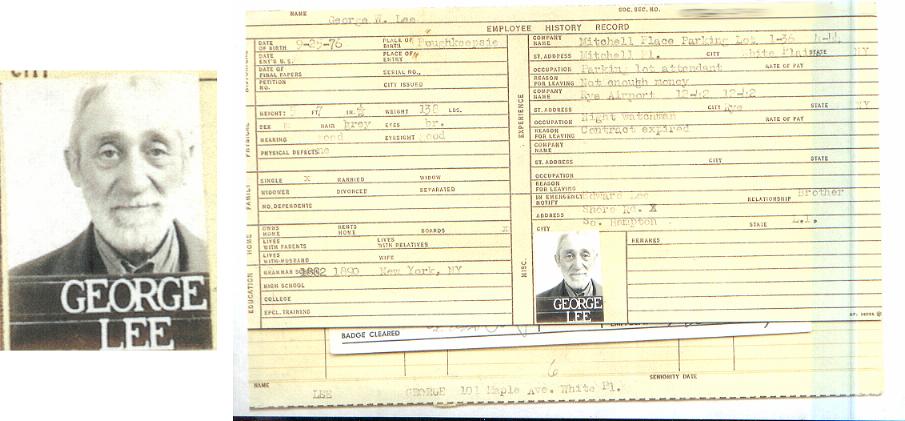 GEORGE
LEE
NAME George W. Lee SOC. SEC. NO.
EMPLOYEE HISTORY RECORD
DATE OF BIRTH 9-25-76 PLACE OF BIRTH Poughkeepsie
DATE ENT'D U.S. PLACE OF ENTRY
DATE OF FINAL PAPERS SERIAL NO.
PETITION NO. CITY ISSUED
HEIGHT: FT. IN. WEIGHT 138 LBS.
SEX HAIR grey EYES br.
HEARING good EYESIGHT good
PHYSICAL DEFECTS no
FAMILY
SINGLE X MARRIED WIDOW
WIDOWER DIVORCED SEPARATED
NO. DEPENDENTS
HOME
OWNS HOME RENTS HOME BOARDS X
LIVES WITH PARENTS LIVES WITH RELATIVES
LIVES WITH HUSBAND WIFE
EDUCATION
GRAMMAR 1882 1890 New York, NY
HIGH SCHOOL
COLLEGE
SPCL. TRAINING
EXPERIENCE
COMPANY NAME Mitchell Place Parking Lot 1-36
ST. ADDRESS Mitchell Pl. CITY White Plains STATE NY
OCCUPATION Parking lot attendant RATE OF PAY
REASON FOR LEAVING Not enough money
COMPANY NAME Rye Airport 12-42 12-42
ST. ADDRESS CITY Rye STATE NY
OCCUPATION Night watchman RATE OF PAY
REASON FOR LEAVING Contract expired
COMPANY NAME
ST. ADDRESS CITY STATE
OCCUPATION
REASON FOR LEAVING
MISC.
IN EMERGENCY NOTIFY Edward Lee RELATIONSHIP Brother
ADDRESS Shore Rd. X
CITY So. Hampton STATE L.I.
REMARKS
GEORGE
LEE
BADGE CLEARED
6
SENIORITY DATE
NAME LEE GEORGE 101 Maple Ave. White Pl.